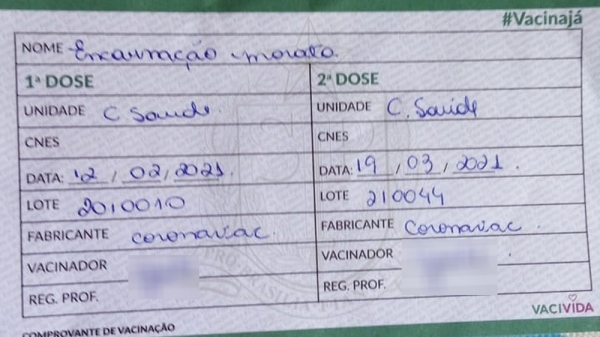 #Vacinajá
NOME Encarnação morato.
1ª DOSE 2ª DOSE
UNIDADE C Saude. UNIDADE C. Saúde
CNES CNES
DATA: 12 / 02 / 2021. DATA: 19 / 03 / 2021.
LOTE 2010010 LOTE 210044
FABRICANTE coronavac. FABRICANTE Coronavac.
VACINADOR VACINADOR
REG. PROF. REG. PROF.
VACIVIDA
COMPROVANTE DE VACINAÇÃO